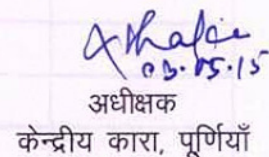 03.05.15
अधीक्षक
केन्द्रीय कारा, पूर्णियाँ